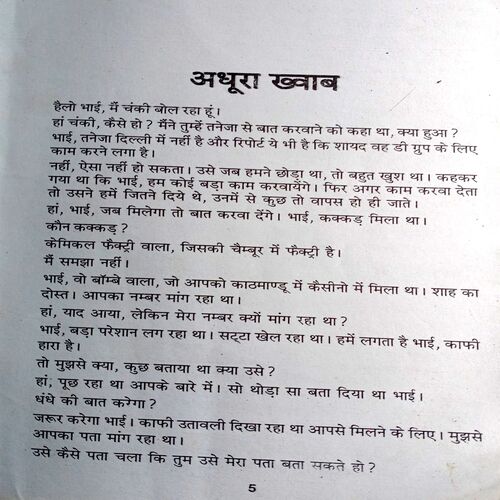 अधूरा ख्वाब
हैलो भाई, मैं चंकी बोल रहा हूं।
हां चंकी, कैसे हो? मैंने तुम्हें तनेजा से बात करवाने को कहा था, क्या हुआ?
भाई, तनेजा दिल्ली में नहीं है और रिपोर्ट ये भी है कि शायद वह डी ग्रुप के लिए
काम करने लगा है।
नहीं, ऐसा नहीं हो सकता। उसे जब हमने छोड़ा था, तो बहुत खुश था। कहकर
गया था कि भाई, हम कोई बड़ा काम करवायेंगे। फिर अगर काम करवा देता
तो उसने हमें जितने दिये थे, उनमें से कुछ तो वापस हो ही जाते।
हां, भाई, जब मिलेगा तो बात करवा देंगे। भाई, कक्कड़ मिला था।
कौन कक्कड़?
केमिकल फैक्ट्री वाला, जिसकी चैम्बूर में फैक्ट्री है।
मैं समझा नहीं।
भाई, वो बॉम्बे वाला, जो आपको काठमाण्डू में कैसीनो में मिला था। शाह का
दोस्त। आपका नम्बर मांग रहा था।
हां, याद आया, लेकिन मेरा नम्बर क्यों मांग रहा था?
भाई, बड़ा परेशान लग रहा था। सट्टा खेल रहा था। हमें लगता है भाई, काफी
हारा है।
तो मुझसे क्या, कुछ बताया था क्या उसे?
हां, पूछ रहा था आपके बारे में। सो थोड़ा सा बता दिया था भाई।
धंधे की बात करेगा?
जरूर करेगा भाई। काफी उतावली दिखा रहा था आपसे मिलने के लिए। मुझसे
आपका पता मांग रहा था।
उसे कैसे पता चला कि तुम उसे मेरा पता बता सकते हो?
5